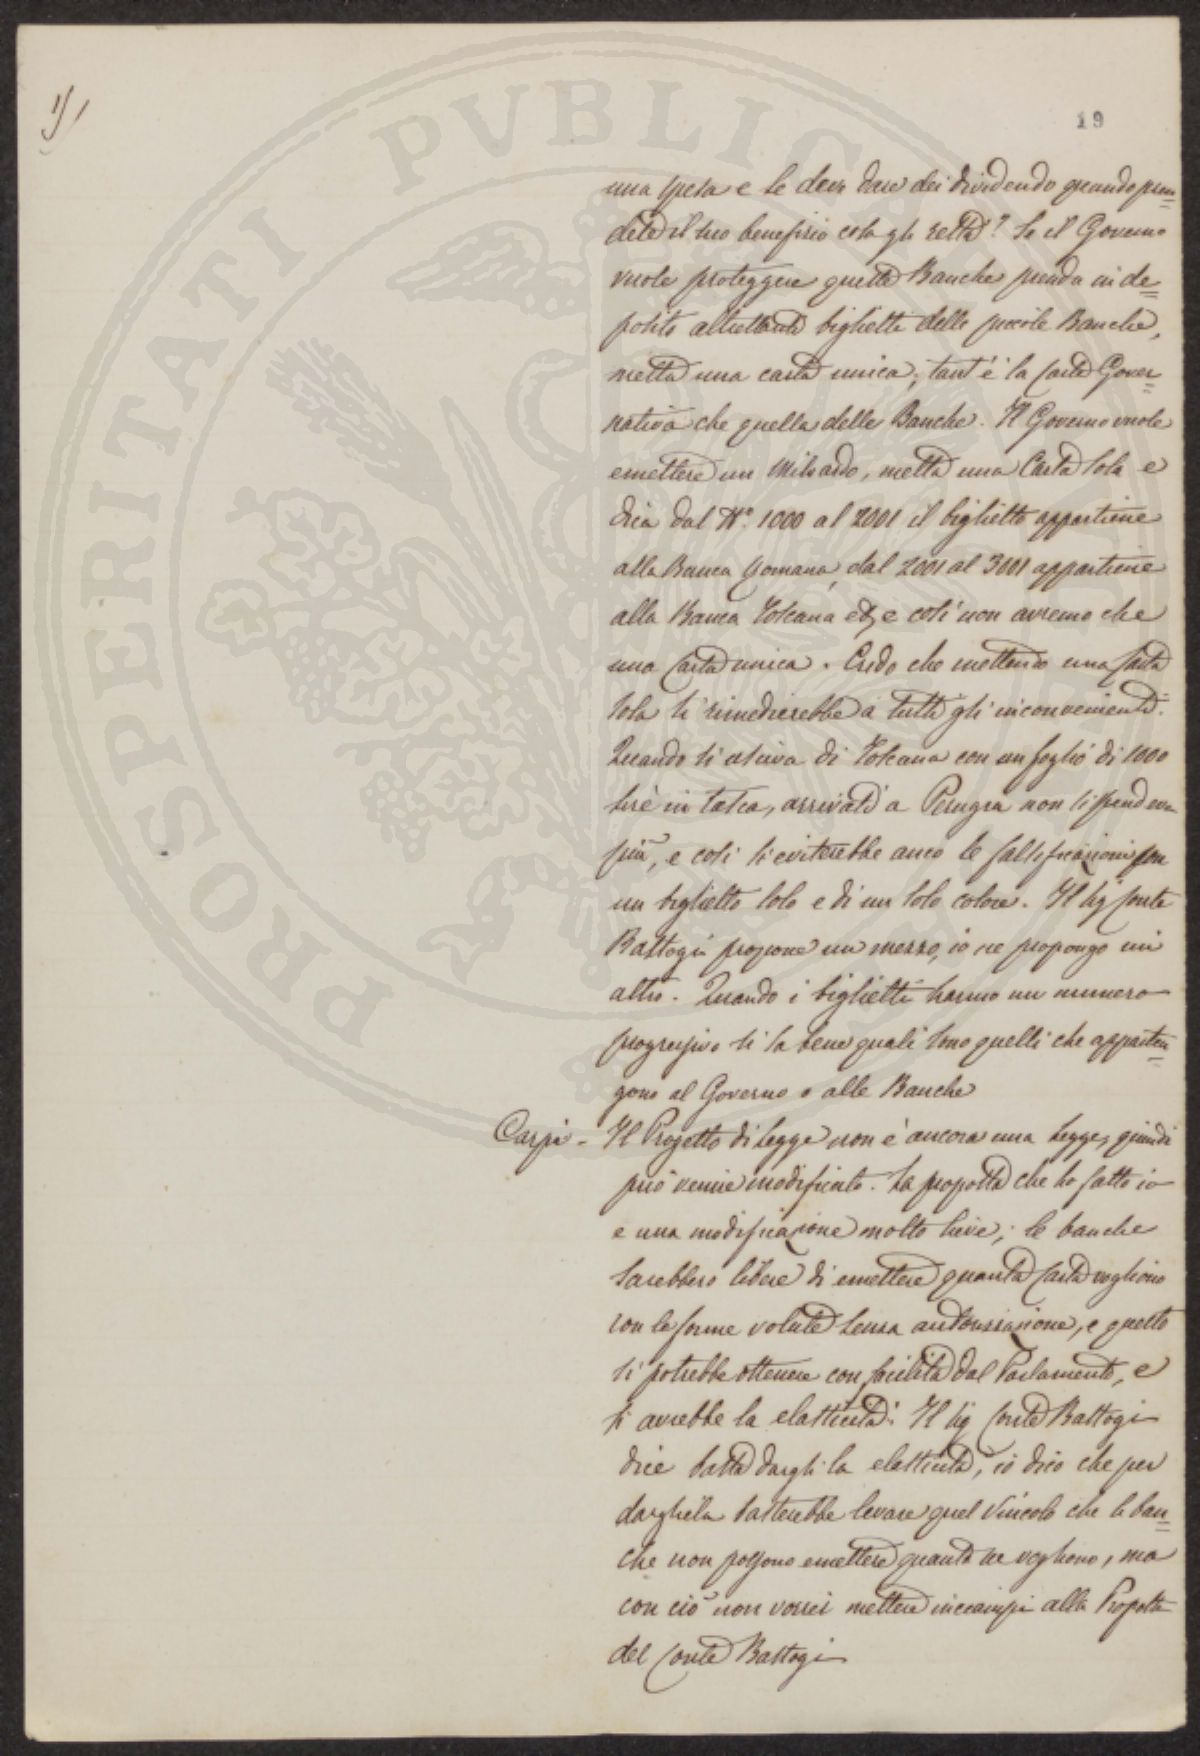 PROSPERITATI PUBLICAE
19
una spesa e le deve dare dei dividendo quando pren=
dete il suo benefizio cosa gli resta? Se il Governo
vuole proteggere queste Banche prenda in de=
posito altrettanti biglietti delle piccole Banche,
metta una carta unica; tant'è la Carta Gover=
nativa che quella delle Banche. Il Governo vuole
emettere un Miliardo, metta una Carta sola e
dica dal N.° 1000 al 2001 il biglietto appartiene
alla Banca Romana, dal 2001 al 3001 appartiene
alla Banca Toscana e così non avremo che
una Carta unica. Credo che mettendo una Carta
sola si rimedierebbe a tutti gli inconvenienti.
Quando si usciva di Toscana con un foglio di 1000
lire in tasca, arrivati a Perugia non si prendeva
più, e così si eviterebbe anco le falsificazioni con
un biglietto solo e di un solo colore. Il Sig Conte
Bastogi propone un mezzo, io ne propongo un
altro. Quando i biglietti hanno un numero
progressivo si sa bene quali sono quelli che apparten=
gono al Governo o alle Banche
Carpi - Il Progetto di Legge non è ancora una Legge, quindi
può venire modificato. La proposta che ho fatto io
è una modificazione molto lieve; le banche
sarebbero libere di emettere quanta Carta vogliono
con le forme volute senza autorizzazione, e questo
si potrebbe ottenere con facilità dal Parlamento, e
si avrebbe la elasticità. Il Sig Conte Bastogi
dice basta dargli la elasticità, io dico che per
darghela basterebbe levare quel Vincolo che le ban=
che non possono emettere quanto ne vogliono, ma
con ciò non vorrei mettere inciampi alla Proposta
del Conte Bastogi